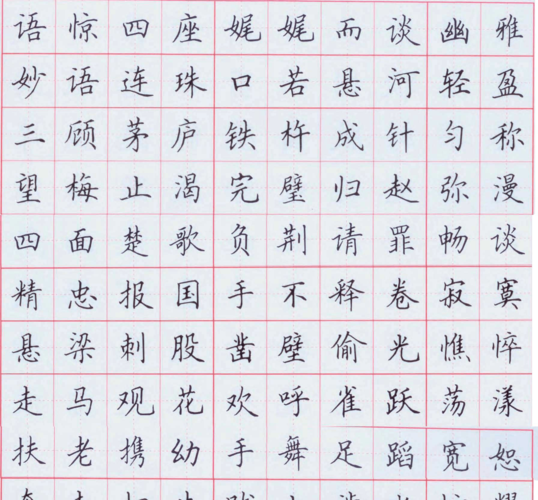 语惊四座娓娓而谈幽雅
妙语连珠口若悬河轻盈
三顾茅庐铁杵成针匀称
望梅止渴完璧归赵弥漫
四面楚歌负荆请罪畅谈
精忠报国手不释卷寂寞
悬梁刺股凿壁偷光憔悴
走马观花欢呼雀跃荡漾
扶老携幼手舞足蹈宽恕